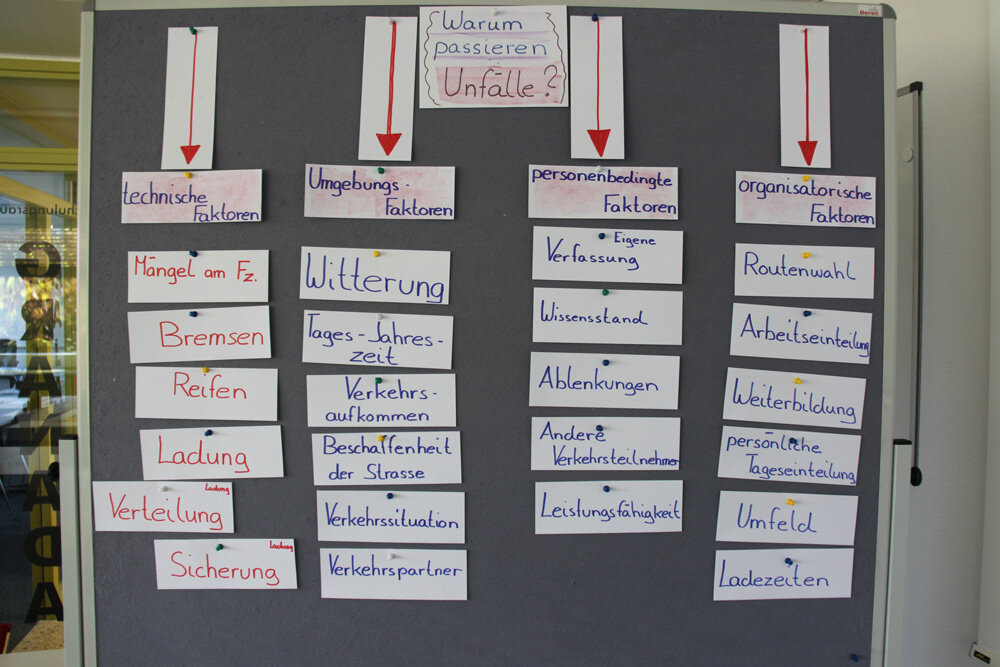 Berec
Warum
passieren
Unfälle?
technische
Faktoren
Mängel am Fz.
Bremsen
Reifen
Ladung
Ladung
Verteilung
Ladung
Sicherung
Umgebungs-
Faktoren
Witterung
Tages-Jahres-
zeit
Verkehrs-
aufkommen
Beschaffenheit
der Strasse
Verkehrssituation
Verkehrspartner
personenbedingte
Faktoren
Eigene
Verfassung
Wissensstand
Ablenkungen
Andere
Verkehrsteilnehmer
Leistungsfähigkeit
organisatorische
Faktoren
Routenwahl
Arbeitseinteilung
Weiterbildung
persönliche
Tageseinteilung
Umfeld
Ladezeiten